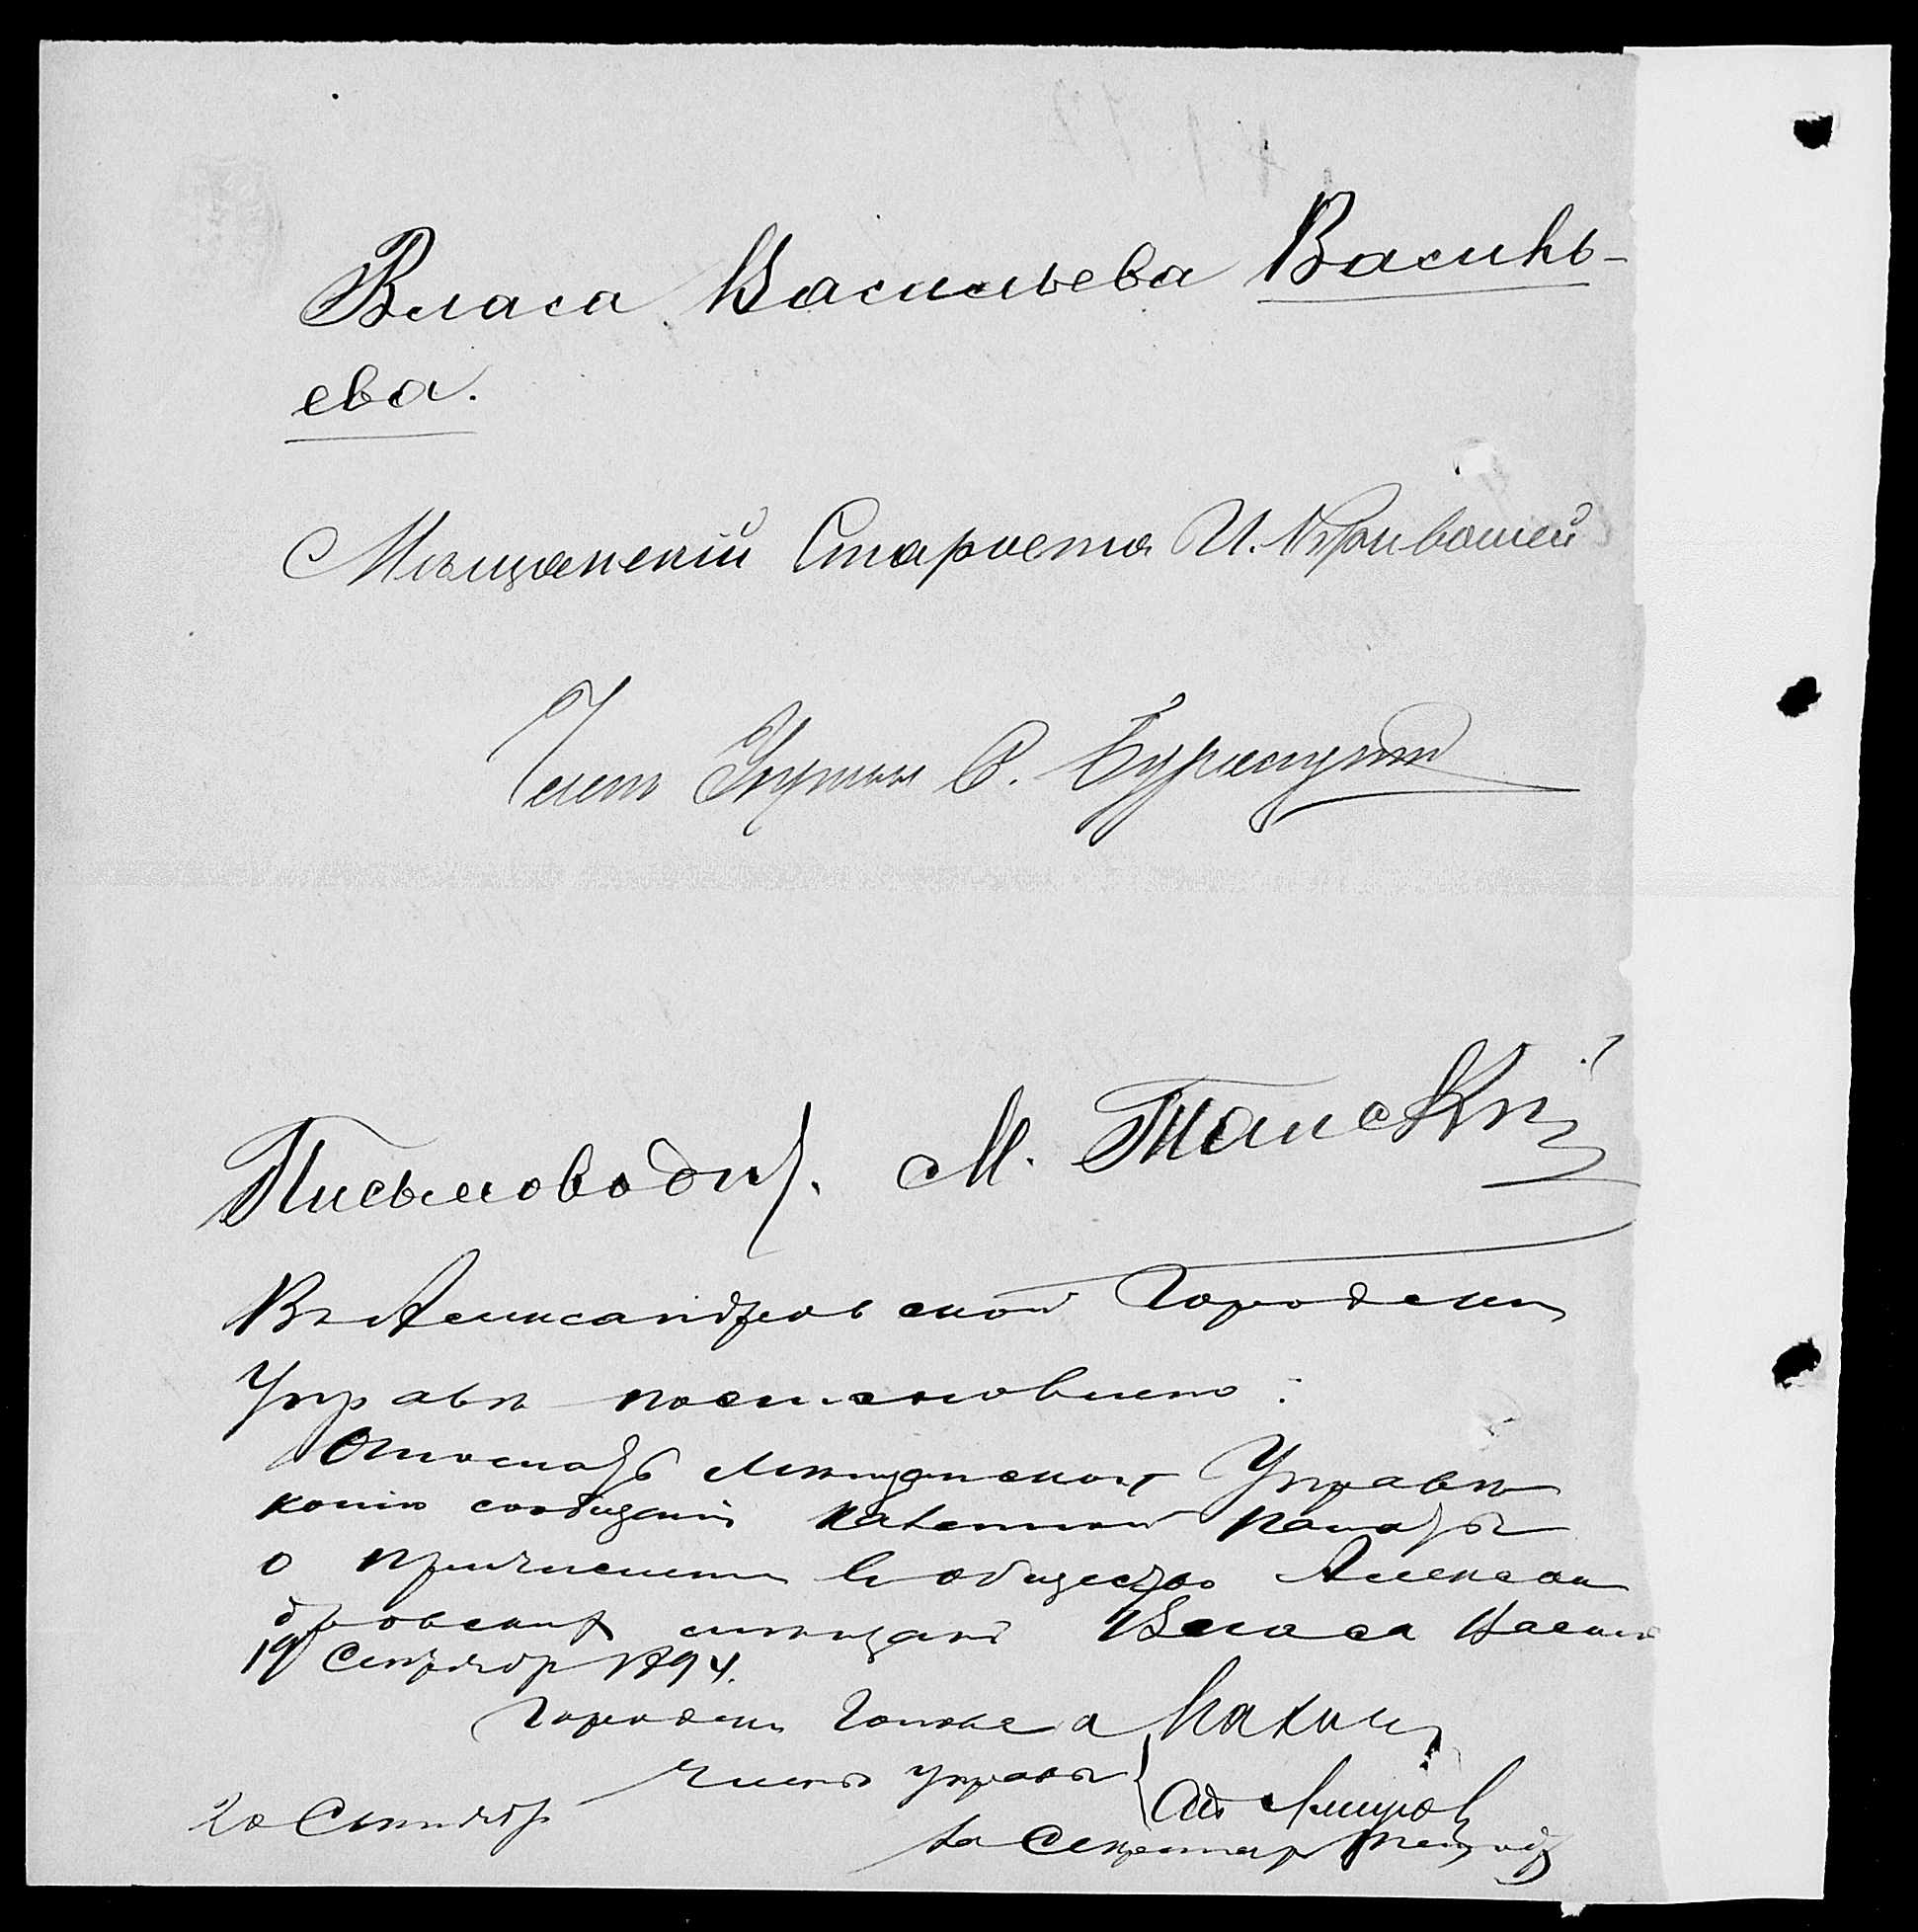 Власа Васильева Василь-
ева.
Мѣщанскій Староста И. Кривошей
Член Управы С.
Письмоводит. М. Танскій
Въ Александровской Городской
Управѣ постановлено:
Отослать Мѣщанской Управѣ
копію сообщенія Казенной Палаты
о причисленіи въ общество Алексан
дровских мѣщанъ Власа Васил
19 Сентября 1894.
Городской Голова
Члены Управы
20 Сентябр
За Секретаря